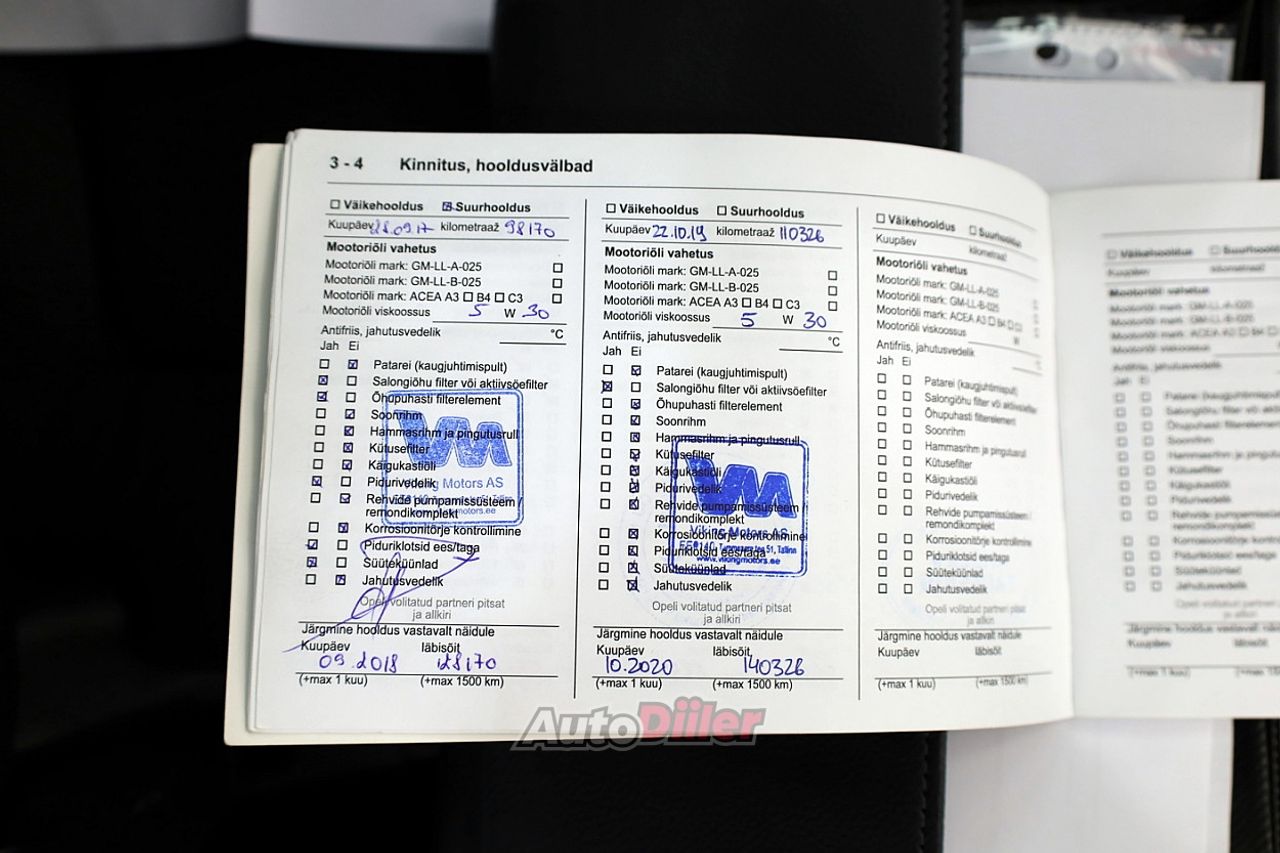 3 - 4 Kinnitus, hooldusvälbad
Väikehooldus Suurhooldus
Kuupäev 28.09.17 kilometraaž 98170
Mootoriõli vahetus
Mootoriõli mark: GM-LL-A-025
Mootoriõli mark: GM-LL-B-025
Mootoriõli mark: ACEA A3 B4 C3
Mootoriõli viskoossus 5 W 30
Antifriis, jahutusvedelik °C
Jah Ei
Patarei (kaugjuhtimispult)
Salongiõhu filter või aktiivsöefilter
Õhupuhasti filterelement
Soonrihm
Hammasrihm ja pingutusrull
Kütusefilter
Käigukastiõli
Pidurivedelik
Rehvide pumpamissüsteem /
remondikomplekt
Korrosioonitõrje kontrollimine
Piduriklotsid ees/taga
Süüteküünlad
Jahutusvedelik
VM
Viking Motors AS
Opeli volitatud partneri pitsat
ja allkiri
Järgmine hooldus vastavalt näidule
Kuupäev läbisõit
09.2018 128170
(+max 1 kuu) (+max 1500 km)
Väikehooldus Suurhooldus
Kuupäev 22.10.19 kilometraaž 110326
Mootoriõli vahetus
Mootoriõli mark: GM-LL-A-025
Mootoriõli mark: GM-LL-B-025
Mootoriõli mark: ACEA A3 B4 C3
Mootoriõli viskoossus 5 W 30
Antifriis, jahutusvedelik °C
Jah Ei
Patarei (kaugjuhtimispult)
Salongiõhu filter või aktiivsöefilter
Õhupuhasti filterelement
Soonrihm
Hammasrihm ja pingutusrull
Kütusefilter
Käigukastiõli
Pidurivedelik
Rehvide pumpamissüsteem /
remondikomplekt
Korrosioonitõrje kontrollimine
Piduriklotsid ees/taga
Süüteküünlad
Jahutusvedelik
VM
Viking Motors AS
51, Tallinn
www.vikingmotors.ee
Opeli volitatud partneri pitsat
ja allkiri
Järgmine hooldus vastavalt näidule
Kuupäev läbisõit
10.2020 140326
(+max 1 kuu) (+max 1500 km)
Väikehooldus Suurhooldus
Kuupäev kilometraaž
Mootoriõli vahetus
Mootoriõli mark: GM-LL-A-025
Mootoriõli mark: GM-LL-B-025
Mootoriõli mark: ACEA A3 B4 C3
Mootoriõli viskoossus W
Antifriis, jahutusvedelik °C
Jah Ei
Patarei (kaugjuhtimispult)
Salongiõhu filter või aktiivsöefilter
Õhupuhasti filterelement
Soonrihm
Hammasrihm ja pingutusrull
Kütusefilter
Käigukastiõli
Pidurivedelik
Rehvide pumpamissüsteem /
remondikomplekt
Korrosioonitõrje kontrollimine
Piduriklotsid ees/taga
Süüteküünlad
Jahutusvedelik
Opeli volitatud partneri pitsat
ja allkiri
Järgmine hooldus vastavalt näidule
Kuupäev läbisõit
(+max 1 kuu) (+max 1500 km)
Väikehooldus Suurhooldus
Kuupäev kilometraaž
Mootoriõli vahetus
Mootoriõli mark: GM-LL-A-025
Mootoriõli mark: GM-LL-B-025
Mootoriõli mark: ACEA A3
Mootoriõli viskoossus
Antifriis, jahutusvedelik
Jah Ei
Soonrihm
Kütusefilter
Käigukastiõli
Pidurivedelik
remondikomplekt
Süüteküünlad
Jahutusvedelik
Kuupäev läbisõit
(+max 1 kuu)
AutoDiiler